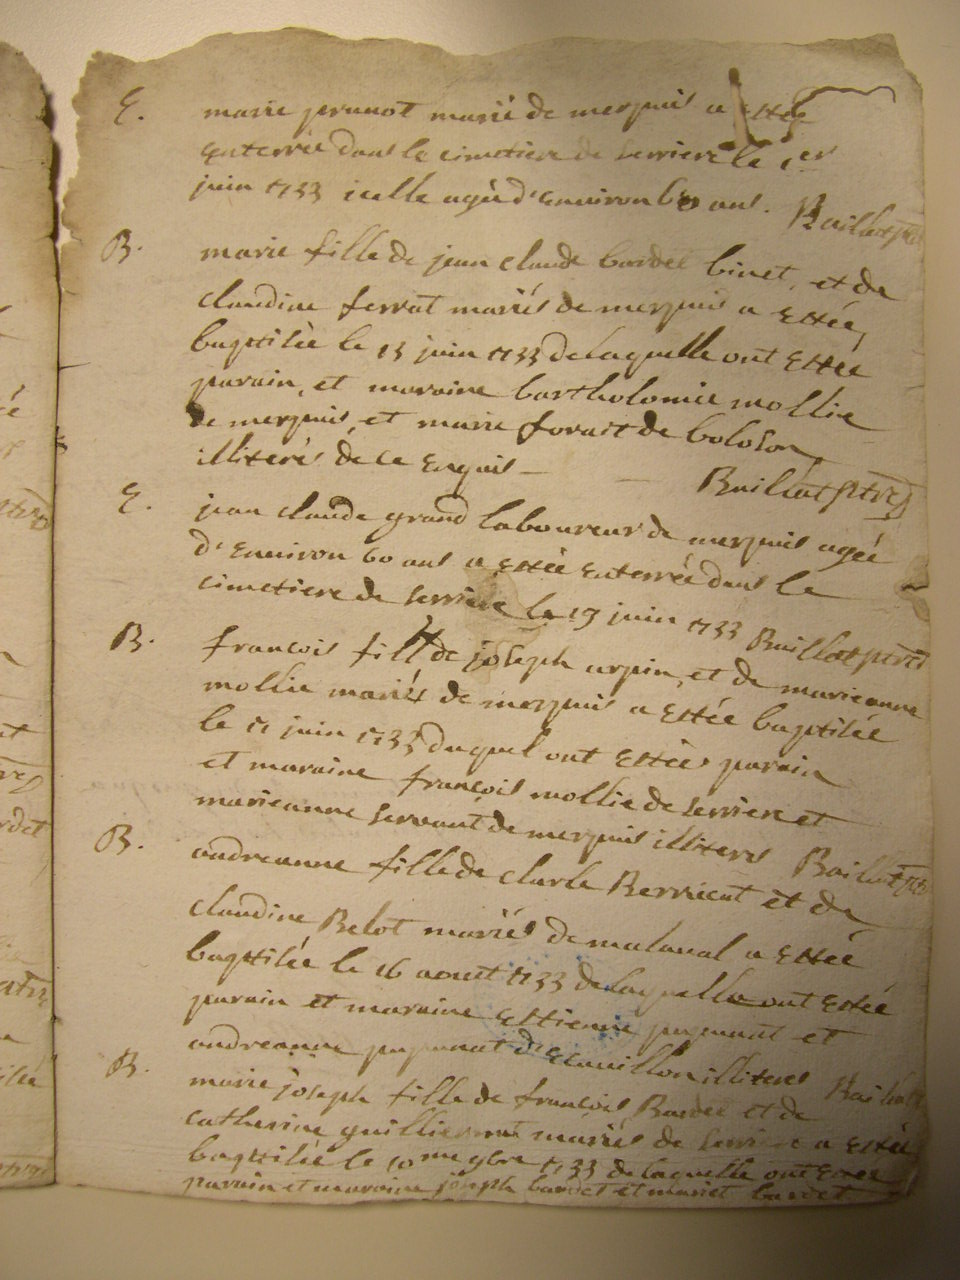 E. marie prunot marié de merpuis a estée
enterrée dans le cimetiere de serriere le 1er
juin 1733 icelle agée d'environ 60 ans. Baillat ptre
B. marie fille de jean claude bardel binet, et de
claudine ferrat mariés de merpuis a estée
baptisée le 13 juin 1733 de laquelle ont estée
parain, et maraine bartholomie mollie
de merpuis, et marie de boloson
illiterés de ce enquis — Baillat ptre
E. jean claude grand laboureur de merpuis agée
d'environ 60 ans a estée enterrée dans le
cimetiere de serriere le 19 juin 1733 Baillat ptre
B. françois fill de joseph arpin, et de marieanne
mollie mariés de merpuis a estée baptisée
le juin 1733 duquel ont estées parain
et maraine françois mollie de serriere et
marieanne servant de merpuis illiterés Baillat ptre
B. andreanne fille de charle Berrieat et de
claudine Belot mariés de malaval a estée
baptisée le 16 aoust 1733 de laquelle ont estée
parain et maraine estienne et
andreanne illiteres Baillat
B. marie joseph fille de françois Bardet et de
catherine mariés de serriere a estée
baptisée le 10me 9bre 1733 de laquelle ont estee
parain et maraine joseph bardet et bardet